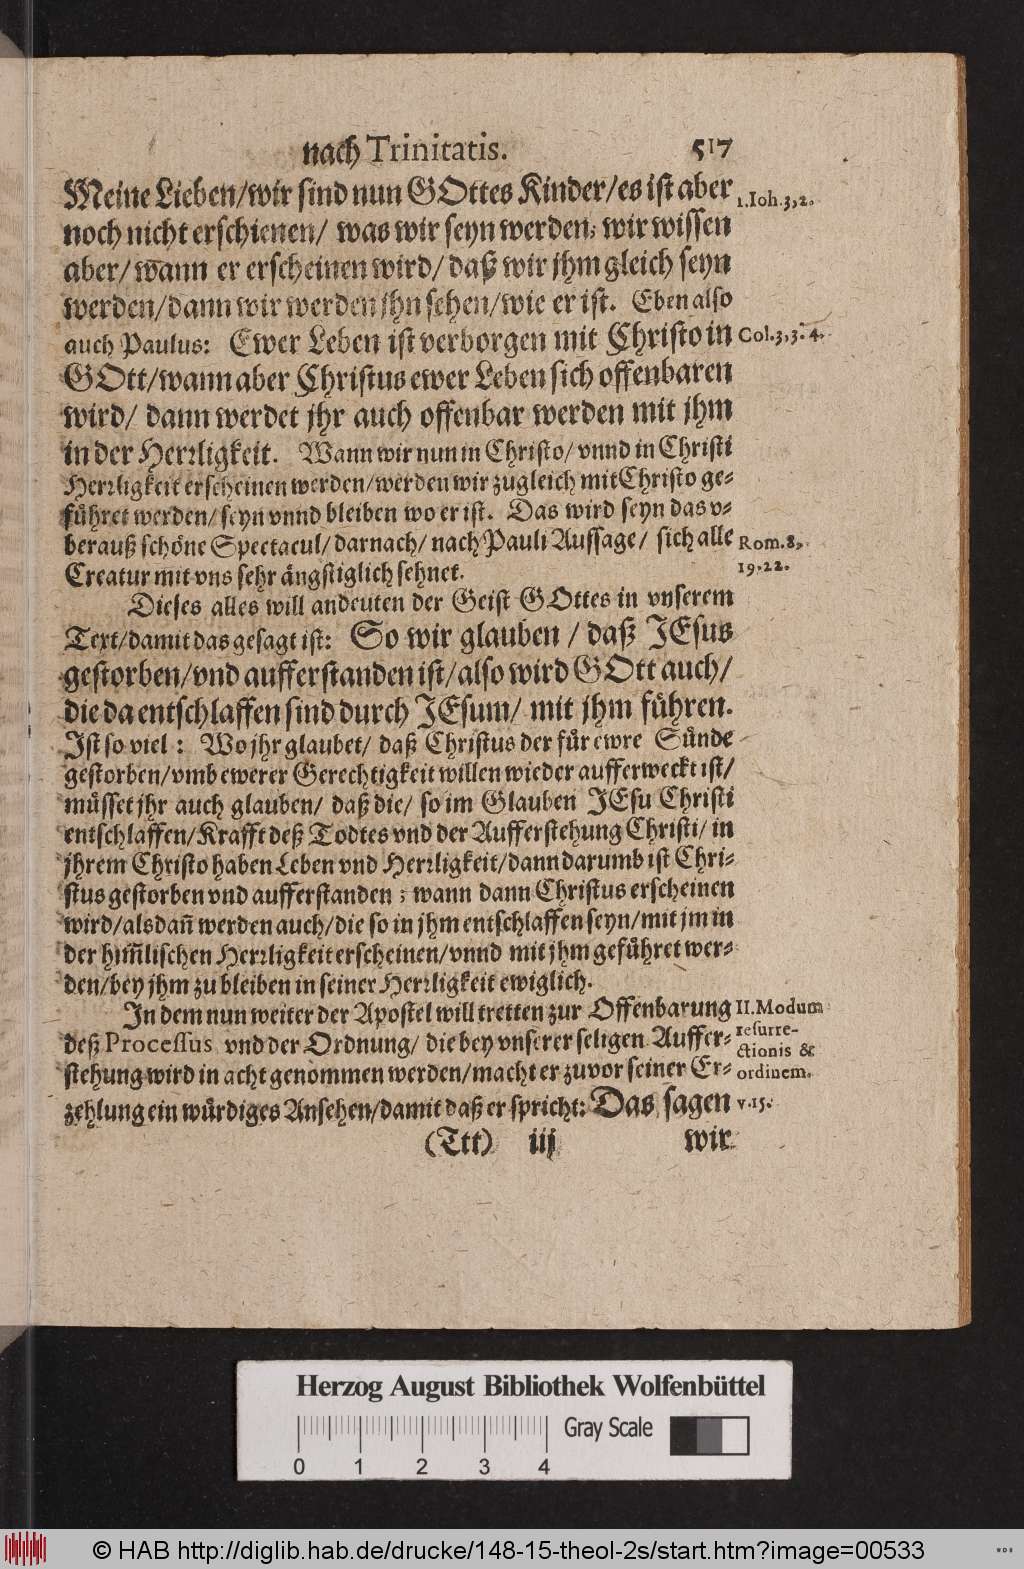 nach Trinitatis. 517
Meine Lieben/wir sind nun GOttes Kinder/es ist aber 1.Ioh.3,2.
noch nicht erschienen/ was wir seyn werden: wir wissen
aber/ wann er erscheinen wird/ daß wir jhm gleich seyn
werden/dann wir werden jhn sehen/wie er ist. Eben also
auch Paulus: Ewer Leben ist verborgen mit Christo in Col.3,3.4.
GOtt/wann aber Christus ewer Leben sich offenbaren
wird/ dann werdet jhr auch offenbar werden mit jhm
in der Herrligkeit. Wann wir nun in Christo/ vnnd in Christi
Herrligkeit erscheinen werden/werden wir zugleich mit Christo ge-
führet werden/ seyn vnnd bleiben wo er ist. Das wird seyn das v-
berauß schöne Spectacul/ darnach/ nach Pauli Aussage/ sich alle Rom.8,
Creatur mit vns sehr ängstiglich sehnet. 19.22.
Dieses alles will andeuten der Geist GOttes in vnserem
Text/damit das gesagt ist: So wir glauben / daß JEsus
gestorben/vnd aufferstanden ist/also wird GOtt auch/
die da entschlaffen sind durch JEsum/ mit jhm führen.
Ist so viel : Wo jhr glaubet/ daß Christus der für ewre Sünde
gestorben/vmb ewerer Gerechtigkeit willen wieder aufferweckt ist/
müsset jhr auch glauben/ daß die/ so im Glauben JEsu Christi
entschlaffen/Krafft deß Todtes vnd der Aufferstehung Christi/ in
jhrem Christo haben Leben vnd Herrligkeit/dann darumb ist Chri-
stus gestorben vnd aufferstanden ; wann dann Christus erscheinen
wird/alsdañ werden auch/die so in jhm entschlaffen seyn/mit jm in
der him̃lischen Herrligkeit erscheinen/vnnd mit jhm geführet wer-
den/bey jhm zu bleiben in seiner Herrligkeit ewiglich.
In dem nun weiter der Apostel will tretten zur Offenbarung II.Modum
deß Processus vnd der Ordnung/ die bey vnserer seligen Auffer- resurre-
ctionis &
stehung wird in acht genommen werden/macht er zuvor seiner Er- ordinem.
zehlung ein würdiges Ansehen/damit daß er spricht: Das sagen v.15.
(Ttt) iij wir
Herzog August Bibliothek Wolfenbüttel
Gray Scale
0 1 2 3 4
© HAB http://diglib.hab.de/drucke/148-15-theol-2s/start.htm?image=00533